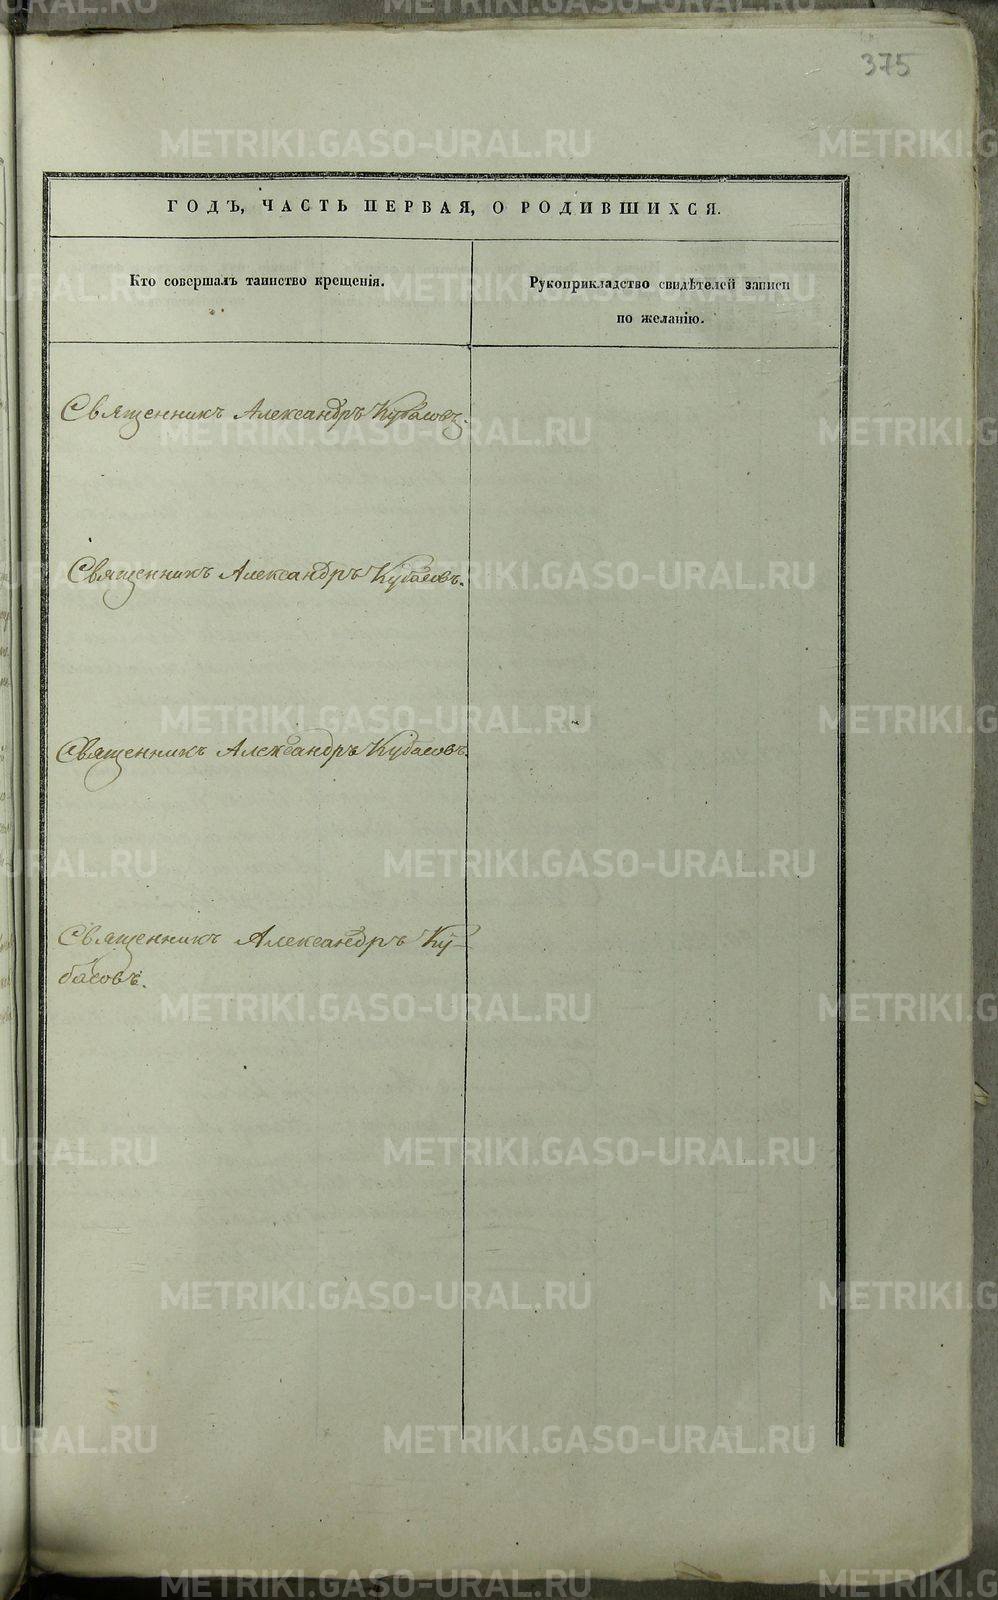 375
ГОДЪ, ЧАСТЬ ПЕРВАЯ, О РОДИВШИХСЯ.
Кто совершалъ таинство крещенія.
Рукоприкладство свидѣтелей записи
по желанію.
Священникъ Александръ Кубасовъ.
Священникъ Александръ Кубасовъ.
Священникъ Александръ Кубасовъ.
Священникъ Александръ Ку-
басовъ.
METRIKI.GASO-URAL.RU